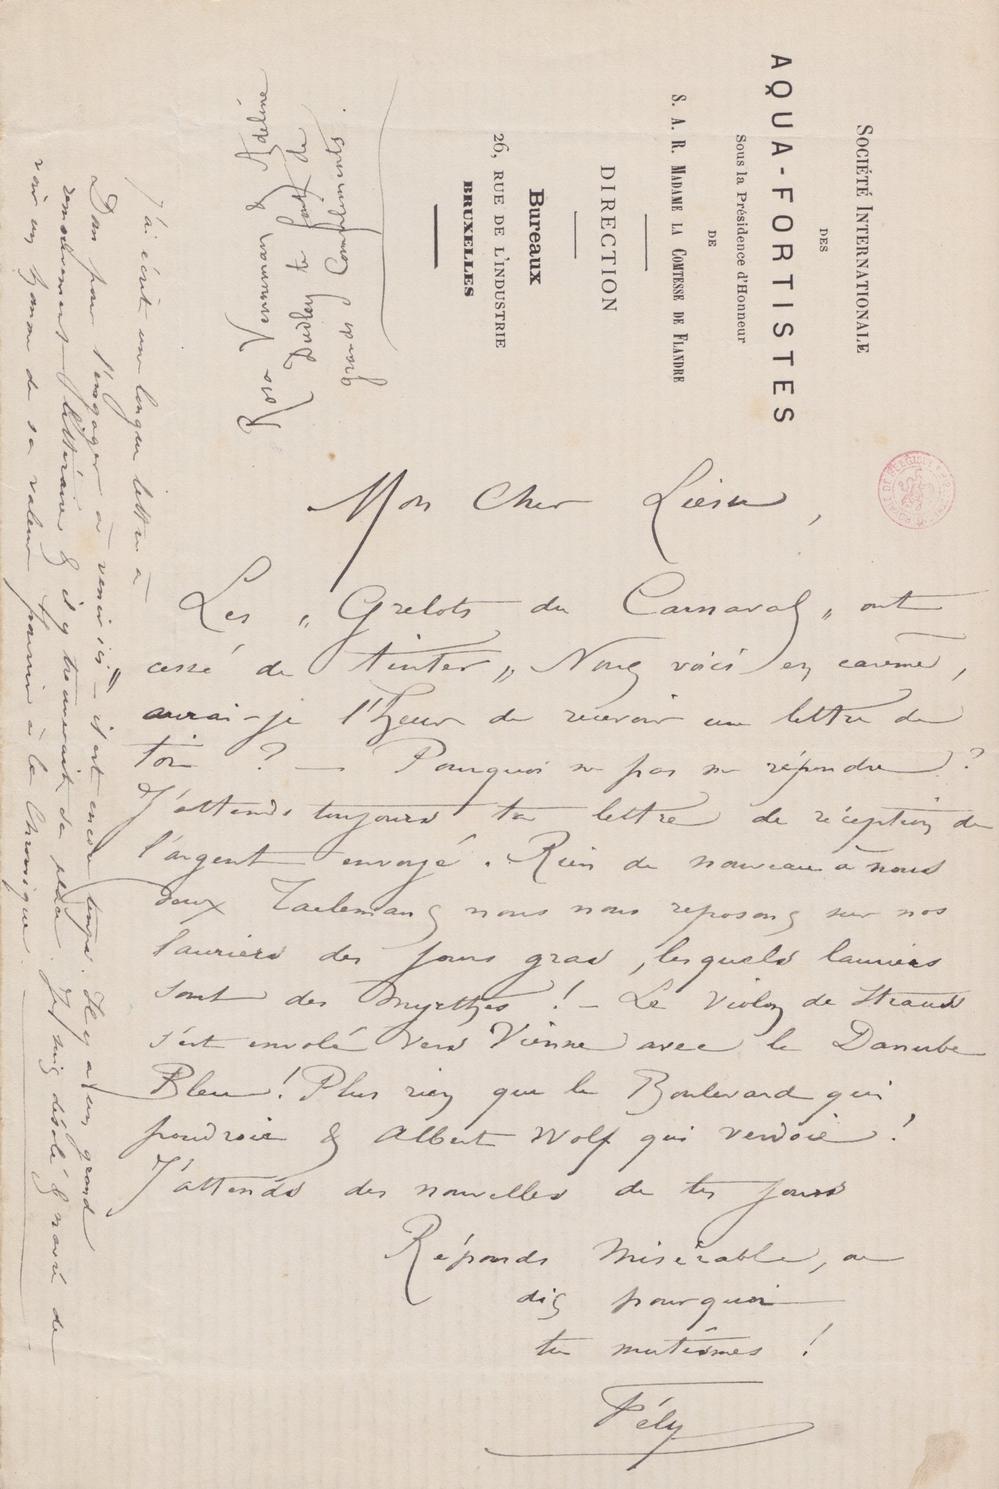 SOCIÉTÉ INTERNATIONALE
DES
AQUA-FORTISTES
Sous la Présidence d'Honneur
DE
S. A. R. MADAME LA COMTESSE DE FLANDRE
DIRECTION
Bureaux
26, RUE DE L'INDUSTRIE
BRUXELLES
Mon Cher Liesse,
Les „ Grelots du Carnaval „ ont
cessé de tinter „ Nous voici en carême,
aurai-je l'heur de recevoir une lettre de
toi ? — Pourquoi ne pas me répondre ?
J'attends toujours ta lettre de réception de
l'argent envoyé. Rien de nouveau à nous
deux Taelemans nous nous reposons sur nos
lauriers des jours gras, lesquels lauriers
sont des myrthes ! – Le Violon de Straus
s'est envolé vers Vienne avec le Danube
Bleu ! Plus rien que le Boulevard qui
poudroie & Albert Wolf qui verdoie !
J'attends des nouvelles de tes jours
Réponds misérable, ou
dis pourquoi
tu mutismes !
Fély
J'ai écrit une longue lettre à
Dam pour l'engager à venir ici – il est encore temps. Il y a un grand
remuement littéraire & il y trouverait sa place. Je suis désolé & navré de
voir un homme de sa valeur pourrir à la Chronique.
&
de
grands Compliments.